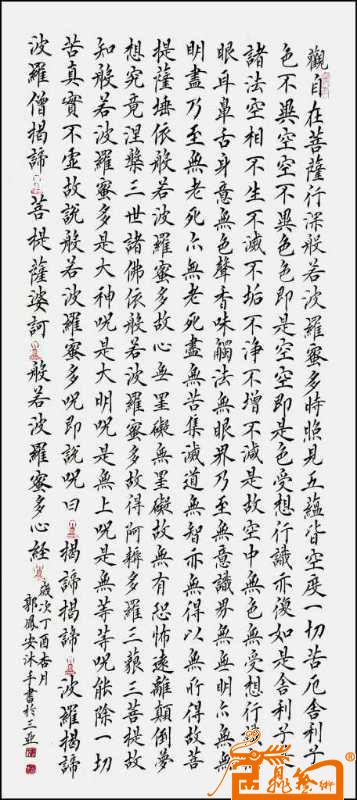 觀自在菩薩行深般若波羅蜜多時照見五蘊皆空度一切苦厄舍利子
色不異空空不異色色即是空空即是色受想行識亦復如是舍利子
諸法空相不生不滅不垢不淨不增不減是故空中無色無受想行
眼耳鼻舌身意無色聲香味觸法無眼界乃至無意識界無無明亦無無
明盡乃至無老死亦無老死盡無苦集滅道無智亦無得以無所得故菩
提薩埵依般若波羅蜜多故心無罣礙無罣礙故無有恐怖遠離顛倒夢
想究竟涅槃三世諸佛依般若波羅蜜多故得阿耨多羅三藐三菩提故
知般若波羅蜜多是大神咒是大明咒是無上咒是無等等咒能除一切
苦真實不虛故說般若波羅蜜多咒即說咒曰揭諦揭諦波羅揭諦
波羅僧揭諦菩提薩婆訶般若波羅蜜多心經
歲次丁酉杏月
郭鳳安沐手書於三亞